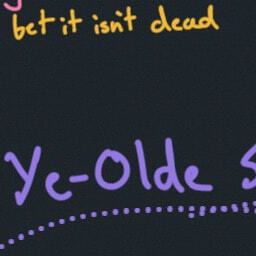 bet it isn't dead
Ye-Olde